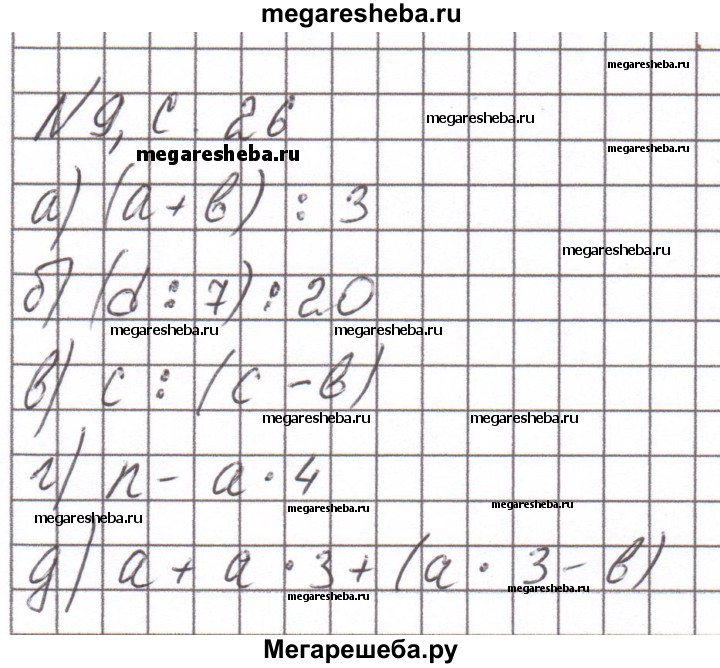 megaresheba.ru
megaresheba.ru
N 9, с. 26
megaresheba.ru
megaresheba.ru
megaresheba.ru
а) (a + b) : 3
megaresheba.ru
б) (d : 7) : 20
megaresheba.ru megaresheba.ru
в) c : (c - b)
megaresheba.ru megaresheba.ru
г) n - a · 4
megaresheba.ru megaresheba.ru megaresheba.ru
д) a + a · 3 + (a · 3 - b)
megaresheba.ru megaresheba.ru
Мегарешеба.ру